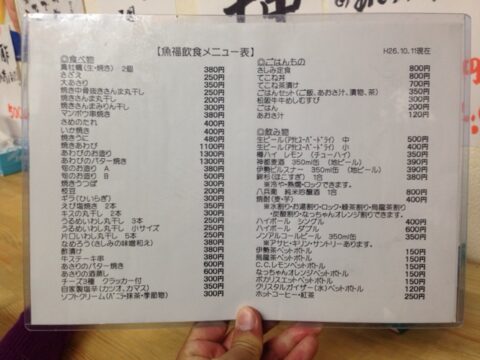 【魚福飲食メニュー表】
H26.10.1現在
◎食べ物
貝牡蠣(生・焼き) 2個 380円
さざえ 350円
大あさり 350円
焼き中骨抜きさんま丸干し 380円
焼きさんま丸干し 200円
焼きさんまみりん干し 300円
マンボウ串焼き 380円
さめのたれ 300円
いか焼き 400円
焼きうに 480円
焼きあわび 1100円
あわびのお造り 1300円
あわびのバター焼き 1300円
旬のお造り A 380円
旬のお造り B 500円
焼きうつぼ 300円
枝豆 200円
ギラ(ひいらぎ) 300円
えび塩焼き 2本 350円
キスの丸干し 2本 350円
うるめいわし丸干し 3本 250円
うるめいわし丸干し 小サイズ 250円
片口いわし丸干し 5本 250円
なめろう(さしみの味噌和え) 380円
酢漬け 380円
牛ステーキ串 380円
あさりのバター焼き 600円
あさりの酒蒸し 600円
チーズ3種 クラッカー付 300円
自家製塩辛(カツオ、カマス) 350円
ソフトクリーム(バニラ・抹茶・季節物) 300円
◎ごはんもの
さしみ定食 800円
てこね丼 800円
てこね茶漬け 700円
ごはんセット(ご飯、あおさ汁、漬物、茶) 350円
松阪牛牛めしむすび 300円
ごはん 200円
あおさ汁 120円
◎飲み物
生ビール(アサヒスーパードライ) 中 500円
生ビール(アサヒスーパードライ) 小 400円
樽ハイ レモン (チューハイ) 350円
神都麦酒 350ml缶 (地ビール) 390円
伊勢ピルスナー 350ml缶 (地ビール) 380円
鉾杉(ほこすぎ) 1合 380円
※冷や・熱燗・ロックできます。
八兵衛 純米吟醸酒 1合 380円
焼酎(麦・芋) 400円
※水割り・お湯割り・ロック・緑茶割り・烏龍茶割り
・炭酸割り・なっちゃんオレンジ割りできます。
ハイボール シングル 400円
ハイボール ダブル 600円
ノンアルコールビール 350ml缶 350円
※アサヒ・キリン・サントリーあります。
伊勢茶ペットボトル 150円
烏龍茶ペットボトル 150円
C.C.レモンペットボトル 150円
なっちゃんオレンジペットボトル 150円
ポカリスエットペットボトル 150円
クリスタルガイザー(水)ペットボトル 150円
ホットコーヒー・紅茶 250円